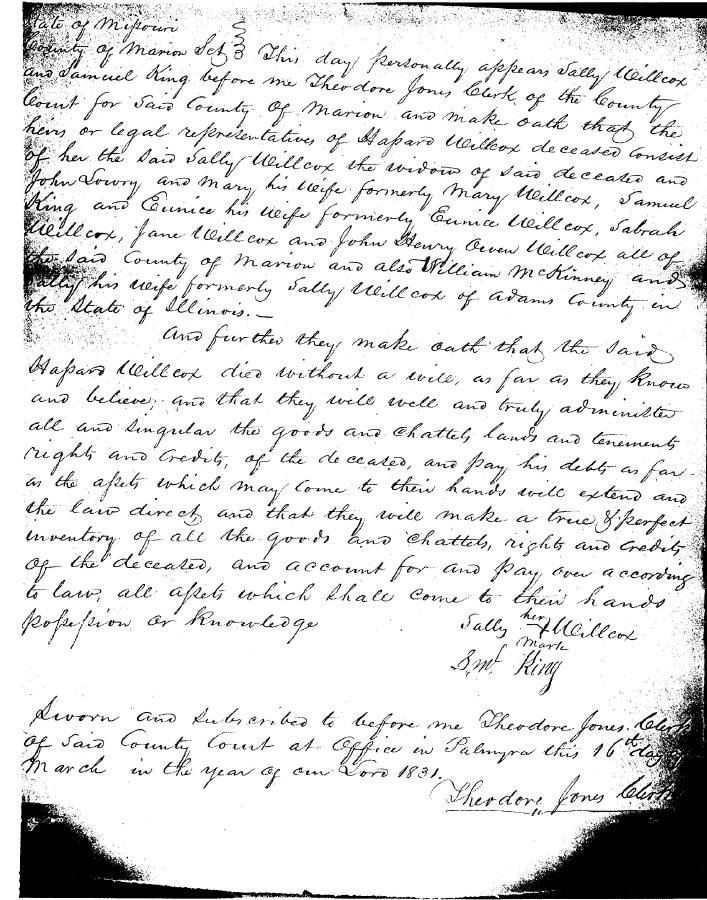 State of Missouri
County of Marion Sct } This day personally appears Sally Willcox
and Samuel King before me Theodore Jones Clerk of the County
Court for said County of Marion and make oath that the
heirs or legal representatives of Hassard Willcox deceased consist
of her the said Sally Willcox the widow of said deceased and
John Lowry and Mary his wife formerly Mary Willcox, Samuel
King and Eunice his wife formerly Eunice Willcox, Sabrah
Willcox, Jane Willcox and John Henry Owen Willcox all of
the said County of Marion and also William McKinney and
Sally his wife formerly Sally Willcox of adams County in
the State of Illinois.—
And further they make oath that the said
Hassard Willcox died without a will, as far as they know
and believe, and that they will well and truly administer
all and singular the goods and chattels lands and tenements
rights and credits, of the deceased, and pay his debts as far
as the assets which may come to their hands will extend and
the law direct, and that they will make a true & perfect
inventory of all the goods and chattels, rights and credits
of the deceased, and account for and pay over according
to law, all assets which shall come to their hands
possession or knowledge
Sally her X mark Willcox
Saml King
Sworn and subscribed to before me Theodore Jones Clerk
of said County Court at Office in Palmyra this 16th day of
March in the year of our Lord 1831.
Theodore Jones Clerk